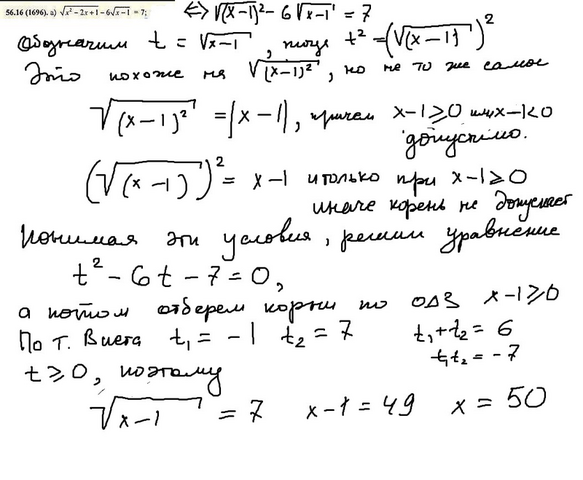 56.16 (1696). а) √(x² − 2x + 1) − 6√(x − 1) = 7; ⇔ √((x−1)²) − 6√(x−1) = 7
Обозначим t = √(x−1), тогда t² = (√(x−1))²
Это похоже на √((x−1)²), но не то же самое
√((x−1)²) = |x − 1|, причем x−1 ≥ 0 или x−1 < 0
допустимо.
(√(x−1))² = x−1 и только при x−1 ≥ 0
иначе корень не допускает
Понимая эти условия, решим уравнение
t² − 6t − 7 = 0,
а потом отберем корни по ОДЗ x−1 ≥ 0
По т. Виета t₁ = −1 t₂ = 7 t₁ + t₂ = 6
t₁t₂ = −7
t ≥ 0, поэтому
√(x−1) = 7 x − 1 = 49 x = 50